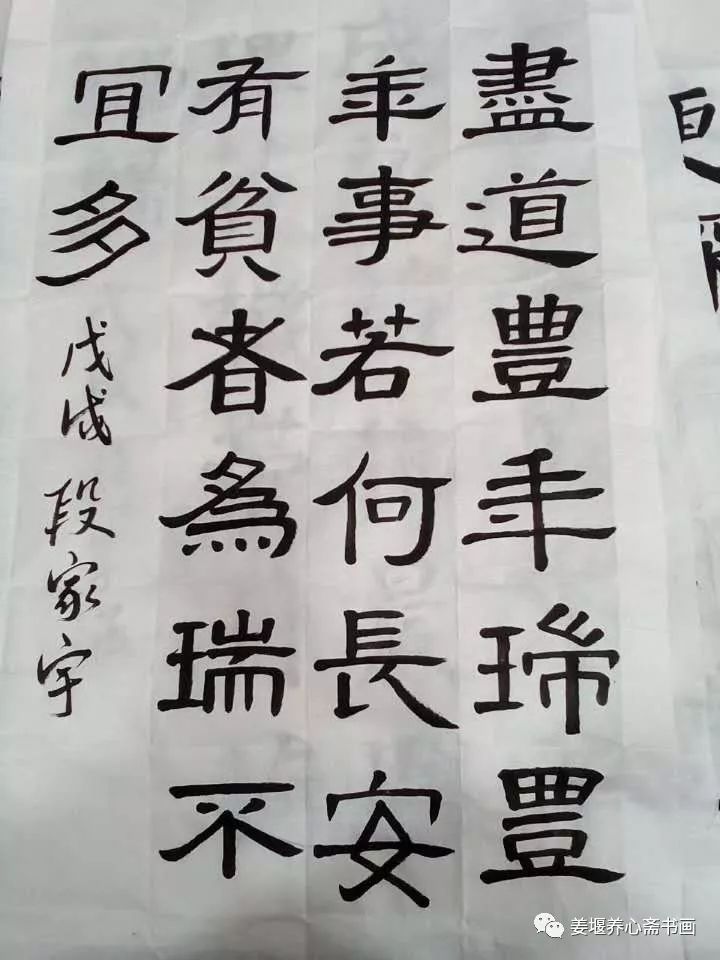 盡道豊年瑞豊
年事若何長安
有貧者為瑞不
冝多
戊戌 段家宇
姜堰养心斋书画